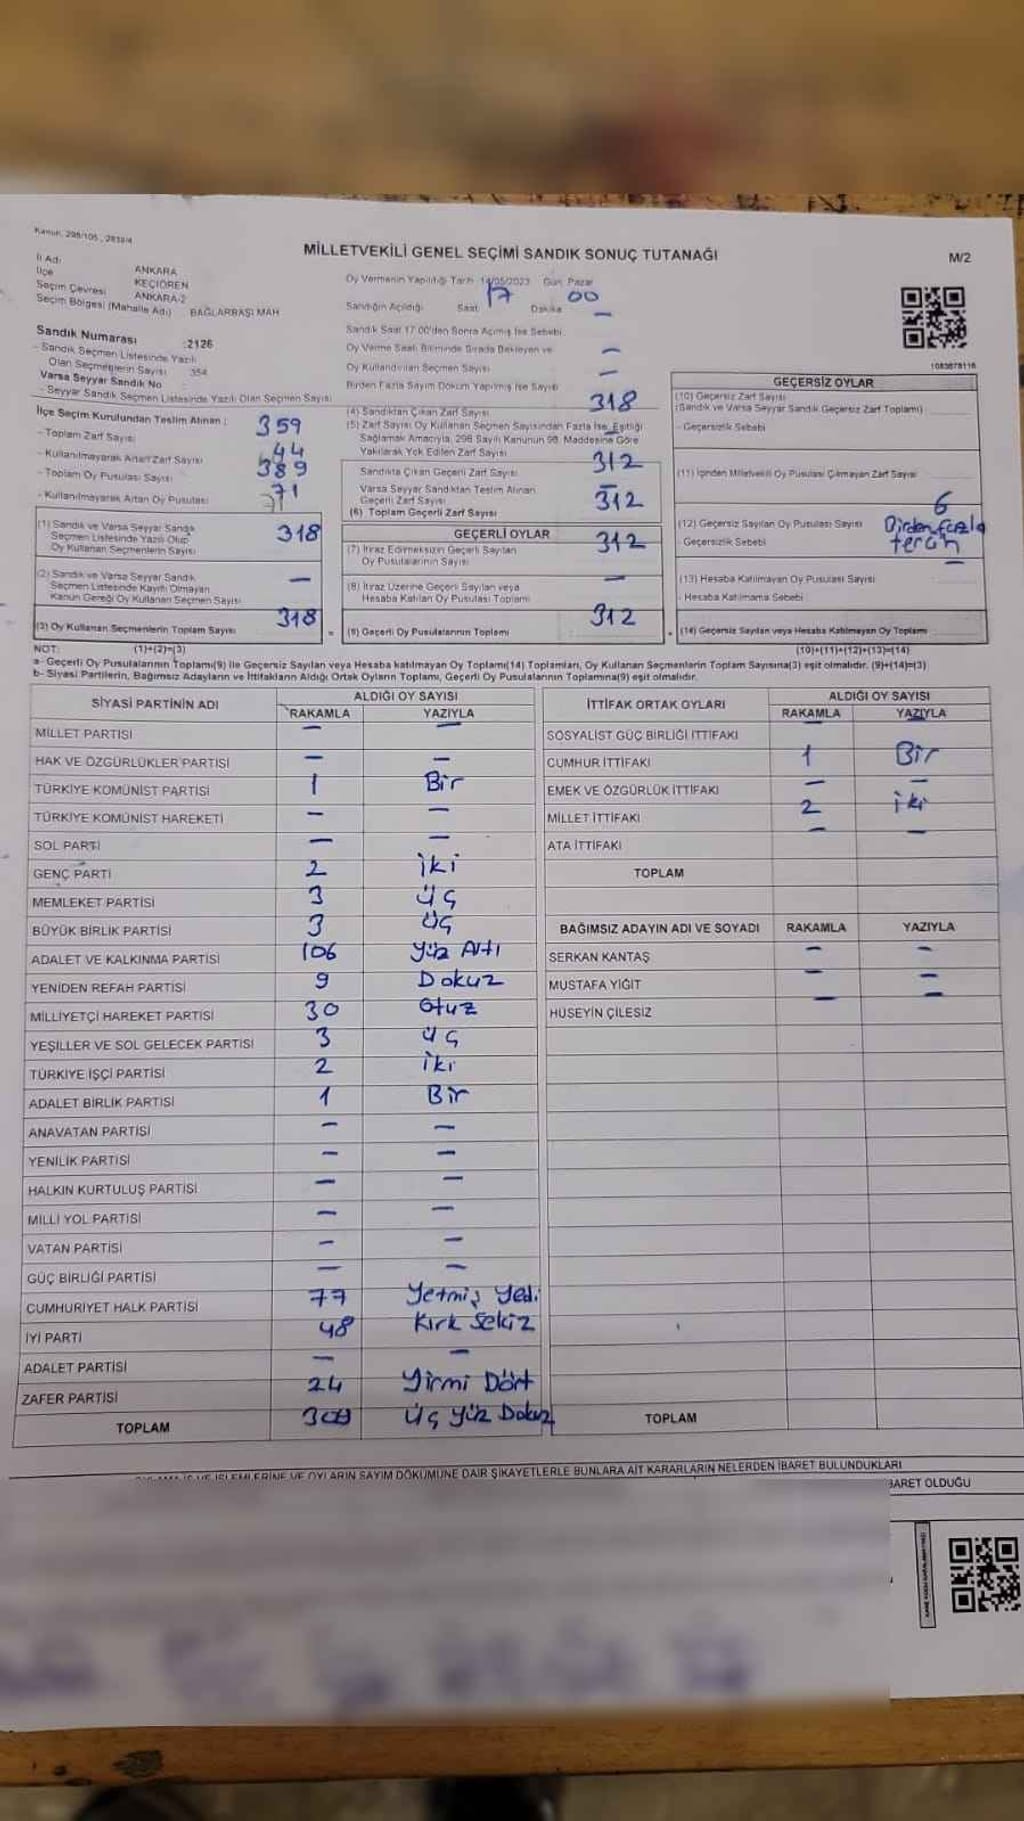 Kanun: 298/105, 2839/4
MİLLETVEKİLİ GENEL SEÇİMİ SANDIK SONUÇ TUTANAĞI
M/2
İl Adı ANKARA
İlçe KEÇİÖREN
Seçim Çevresi ANKARA-2
Seçim Bölgesi (Mahalle Adı) BAĞLARBAŞI MAH
Sandık Numarası :2126
- Sandık Seçmen Listesinde Yazılı
Olan Seçmenlerin Sayısı : 354
Varsa Seyyar Sandık No :
- Seyyar Sandık Seçmen Listesinde Yazılı Olan Seçmen Sayısı :
İlçe Seçim Kurulundan Teslim Alınan :
- Toplam Zarf Sayısı 359
- Kullanılmayarak Artan Zarf Sayısı 44
- Toplam Oy Pusulası Sayısı 389
- Kullanılmayarak Artan Oy Pusulası 71
(1) Sandık ve Varsa Seyyar Sandık
Seçmen Listesinde Yazılı Olup
Oy Kullanan Seçmenlerin Sayısı 318
(2) Sandık ve Varsa Seyyar Sandık
Seçmen Listesinde Kayıtlı Olmayan
Kanun Gereği Oy Kullanan Seçmen Sayısı –
(3) Oy Kullanan Seçmenlerin Toplam Sayısı 318
Oy Vermenin Yapıldığı Tarih 14/05/2023 Gün Pazar
Sandığın Açıldığı Saat 17 Dakika 00
Sandık Saat 17.00'den Sonra Açılmış İse Sebebi –
Oy Verme Saati Bitiminde Sırada Bekleyen ve
Oy Kullandırılan Seçmen Sayısı –
Birden Fazla Sayım Döküm Yapılmış İse Sayısı –
(4) Sandıktan Çıkan Zarf Sayısı 318
(5) Zarf Sayısı Oy Kullanan Seçmen Sayısından Fazla İse, Eşitliği
Sağlamak Amacıyla, 298 Sayılı Kanunun 98. Maddesine Göre
Yakılarak Yok Edilen Zarf Sayısı –
Sandıkta Çıkan Geçerli Zarf Sayısı 312
Varsa Seyyar Sandıktan Teslim Alınan
Geçerli Zarf Sayısı –
(6) Toplam Geçerli Zarf Sayısı 312
GEÇERLİ OYLAR
(7) İtiraz Edilmeksizin Geçerli Sayılan
Oy Pusulalarının Sayısı 312
(8) İtiraz Üzerine Geçerli Sayılan veya
Hesaba Katılan Oy Pusulası Toplamı –
(9) Geçerli Oy Pusulalarının Toplamı 312
1083678116
GEÇERSİZ OYLAR
(10) Geçersiz Zarf Sayısı
(Sandık ve Varsa Seyyar Sandık Geçersiz Zarf Toplamı)
- Geçersizlik Sebebi
(11) İçinden Milletvekili Oy Pusulası Çıkmayan Zarf Sayısı
(12) Geçersiz Sayılan Oy Pusulası Sayısı 6
- Geçersizlik Sebebi Birden fazla
tercih
(13) Hesaba Katılmayan Oy Pusulası Sayısı –
- Hesaba Katılmama Sebebi
(14) Geçersiz Sayılan veya Hesaba Katılmayan Oy Toplamı
NOT: (1)+(2)=(3) (10)+(11)+(12)+(13)=(14)
a- Geçerli Oy Pusulalarının Toplamı(9) ile Geçersiz Sayılan veya Hesaba katılmayan Oy Toplamı(14) Toplamları, Oy Kullanan Seçmenlerin Toplam Sayısına(3) eşit olmalıdır. (9)+(14)=(3)
b- Siyasi Partilerin, Bağımsız Adayların ve İttifakların Aldığı Ortak Oyların Toplamı, Geçerli Oy Pusulalarının Toplamına(9) eşit olmalıdır.
SİYASİ PARTİNİN ADI ALDIĞI OY SAYISI
RAKAMLA YAZIYLA
MİLLET PARTİSİ – –
HAK VE ÖZGÜRLÜKLER PARTİSİ – –
TÜRKİYE KOMÜNİST PARTİSİ 1 Bir
TÜRKİYE KOMÜNİST HAREKETİ – –
SOL PARTİ – –
GENÇ PARTİ 2 iki
MEMLEKET PARTİSİ 3 üç
BÜYÜK BİRLİK PARTİSİ 3 üç
ADALET VE KALKINMA PARTİSİ 106 Yüz Altı
YENİDEN REFAH PARTİSİ 9 Dokuz
MİLLİYETÇİ HAREKET PARTİSİ 30 Otuz
YEŞİLLER VE SOL GELECEK PARTİSİ 3 üç
TÜRKİYE İŞÇİ PARTİSİ 2 iki
ADALET BİRLİK PARTİSİ 1 Bir
ANAVATAN PARTİSİ – –
YENİLİK PARTİSİ – –
HALKIN KURTULUŞ PARTİSİ – –
MİLLİ YOL PARTİSİ – –
VATAN PARTİSİ – –
GÜÇ BİRLİĞİ PARTİSİ – –
CUMHURİYET HALK PARTİSİ 77 Yetmiş Yedi
İYİ PARTİ 48 Kırk Sekiz
ADALET PARTİSİ – –
ZAFER PARTİSİ 24 Yirmi Dört
TOPLAM 309 Üç Yüz Dokuz
İTTİFAK ORTAK OYLARI ALDIĞI OY SAYISI
RAKAMLA YAZIYLA
SOSYALİST GÜÇ BİRLİĞİ İTTİFAKI – –
CUMHUR İTTİFAKI 1 Bir
EMEK VE ÖZGÜRLÜK İTTİFAKI – –
MİLLET İTTİFAKI 2 iki
ATA İTTİFAKI – –
TOPLAM
BAĞIMSIZ ADAYIN ADI VE SOYADI RAKAMLA YAZIYLA
SERKAN KANTAŞ – –
MUSTAFA YİĞİT – –
HÜSEYİN ÇİLESİZ – –
TOPLAM
İŞLEMLERİNE VE OYLARIN SAYIM DÖKÜMÜNE DAİR ŞİKAYETLERLE BUNLARA AİT KARARLARIN NELERDEN İBARET BULUNDUKLARI
BARET OLDUĞU